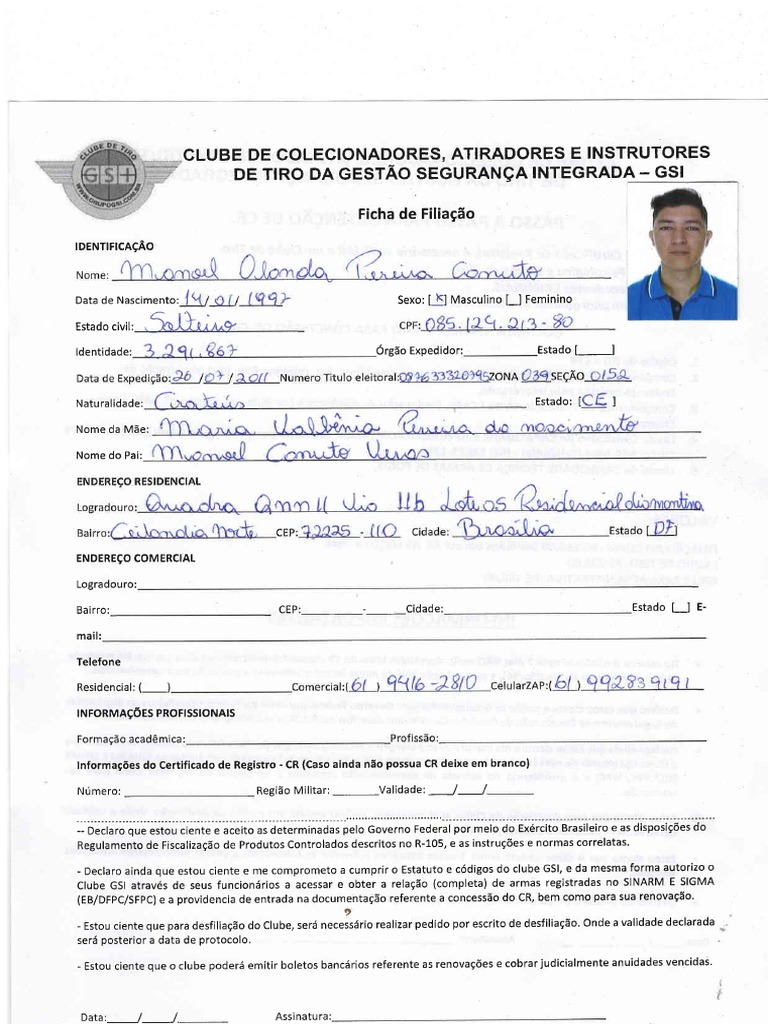 CLUBE DE TIRO
GSI
WWW.GRUPOGSI.COM.BR
CLUBE DE COLECIONADORES, ATIRADORES E INSTRUTORES
DE TIRO DA GESTÃO SEGURANÇA INTEGRADA – GSI
Ficha de Filiação
IDENTIFICAÇÃO
Nome: Manoel Olanda Pereira Canuto
Data de Nascimento: 14/01/1997 Sexo: [x] Masculino [ ] Feminino
Estado civil: Solteiro CPF: 085.124.213-80
Identidade: 3.291.867 Órgão Expedidor: Estado [ ]
Data de Expedição: 26/07/2011 Numero Titulo eleitoral: 087633320795 ZONA 039 SEÇÃO 0152
Naturalidade: Crateús Estado: [CE]
Nome da Mãe: Maria Valbênia Pereira do nascimento
Nome do Pai: Manoel Canuto Veras
ENDEREÇO RESIDENCIAL
Logradouro: Quadra Qnn 11 Via 11b Lote 05 Residencial
Bairro: Ceilandia Norte CEP: 72225-110 Cidade: Brasília Estado [DF]
ENDEREÇO COMERCIAL
Logradouro:
Bairro: CEP: - Cidade: Estado [ ] E-
mail:
Telefone
Residencial: ( ) Comercial: (61) 9416-2810 CelularZAP: (61) 992839191
INFORMAÇÕES PROFISSIONAIS
Formação acadêmica: Profissão:
Informações do Certificado de Registro - CR (Caso ainda não possua CR deixe em branco)
Número: Região Militar: Validade: / /
-- Declaro que estou ciente e aceito as determinadas pelo Governo Federal por meio do Exército Brasileiro e as disposições do
Regulamento de Fiscalização de Produtos Controlados descritos no R-105, e as instruções e normas correlatas.
- Declaro ainda que estou ciente e me comprometo a cumprir o Estatuto e códigos do clube GSI, e da mesma forma autorizo o
Clube GSI através de seus funcionários a acessar e obter a relação (completa) de armas registradas no SINARM E SIGMA
(EB/DFPC/SFPC) e a providencia de entrada na documentação referente a concessão do CR, bem como para sua renovação.
- Estou ciente que para desfiliação do Clube, será necessário realizar pedido por escrito de desfiliação. Onde a validade declarada
será posterior a data de protocolo.
- Estou ciente que o clube poderá emitir boletos bancários referente as renovações e cobrar judicialmente anuidades vencidas.
Data: / / Assinatura: